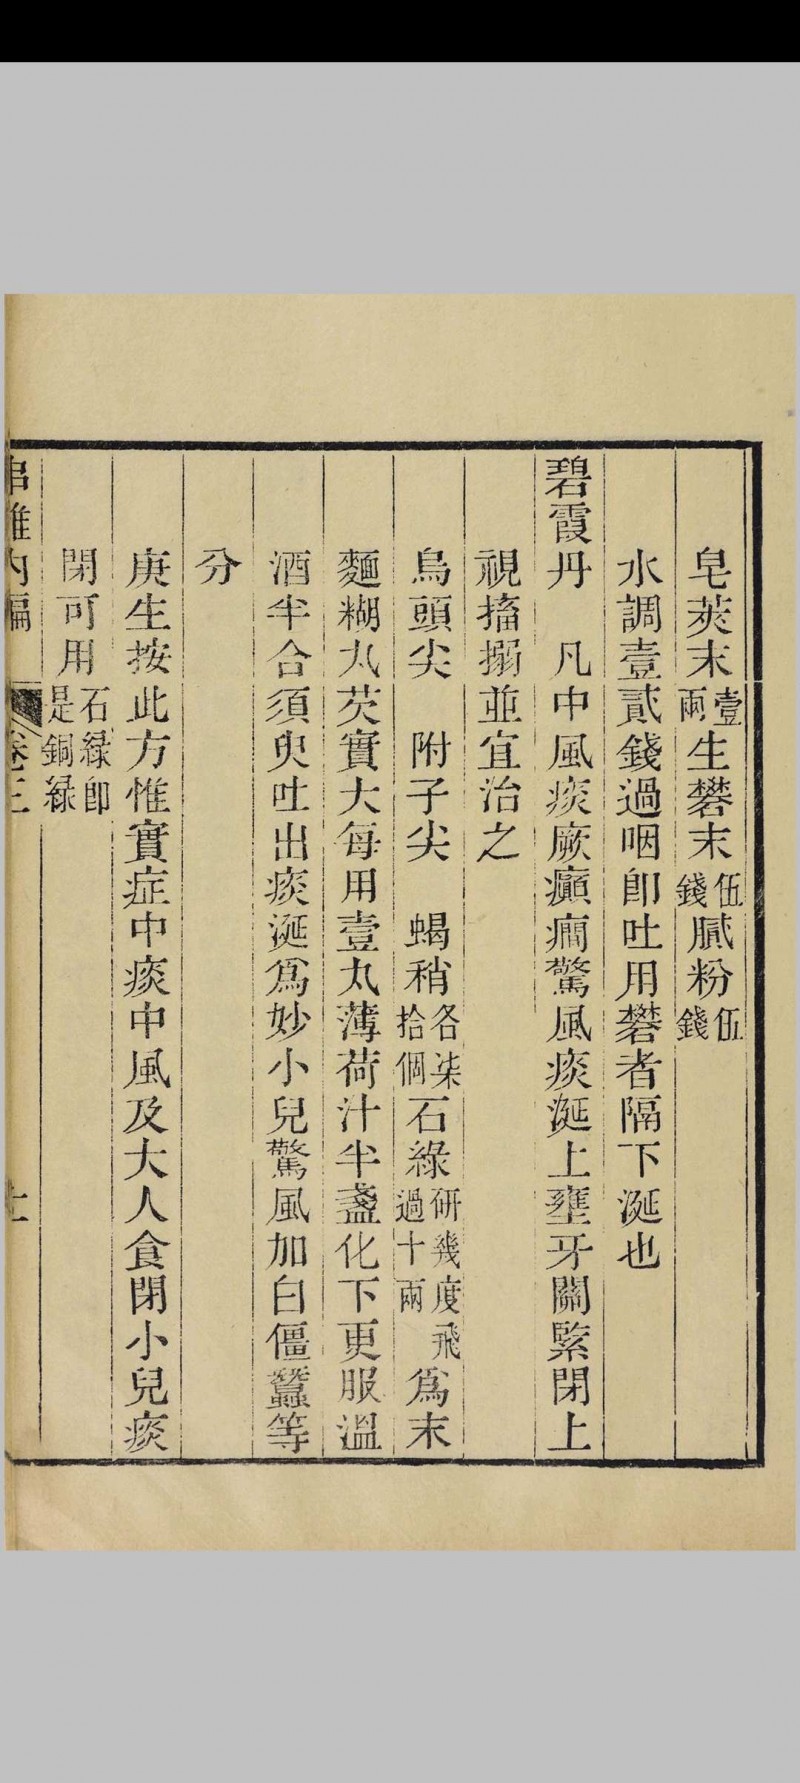 皂莢末壹兩生礬末伍錢膩粉伍錢
水調壹貳錢過咽卽吐用礬者隔下涎也
碧霞丹　凡中風痰厥癲癇驚風痰涎上壅牙關緊閉上
視搐搦並宜治之
烏頭尖　附子尖　蝎稍各柒拾個石綠研幾度飛過十兩爲末
麵糊丸芡實大每用壹丸薄荷汁半盞化下更服溫
酒半合須臾吐出痰涎爲妙小兒驚風加白僵蠶等
分
庚生按此方惟實症中痰中風及大人食閉小兒痰
閉可用石緑卽是銅緑
串雅內編　卷三